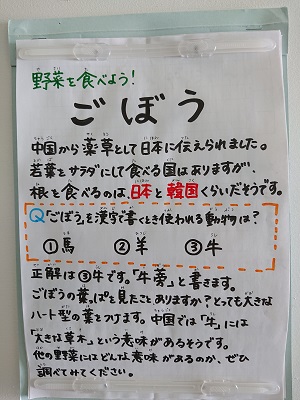 野菜を食べよう!
ごぼう
中国から薬草として日本に伝えられました。
若葉をサラダにして食べる国はありますが、
根を食べるのは、日本と韓国くらいだそうです。
Q「ごぼう」を漢字で書くとき使われる動物は?
①馬 ②羊 ③牛
正解は③牛です。「牛蒡」と書きます。
ごぼうの葉っぱを見たことありますか?とっても大きな
ハート型の葉をつけます。中国では「牛」には
「大きな草木」という意味があるそうです。
他の野菜にはどんな意味があるのか、ぜひ
調べてみてください。